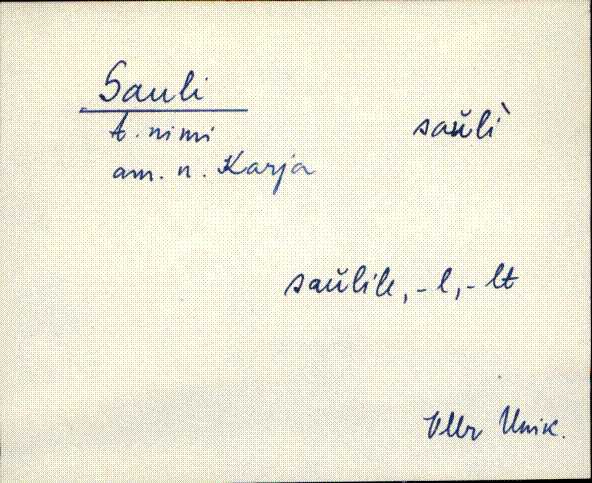 Sauli
t. nimi
saŭlì
am. n. Karja
saŭlile, -l, -lt
Unik.